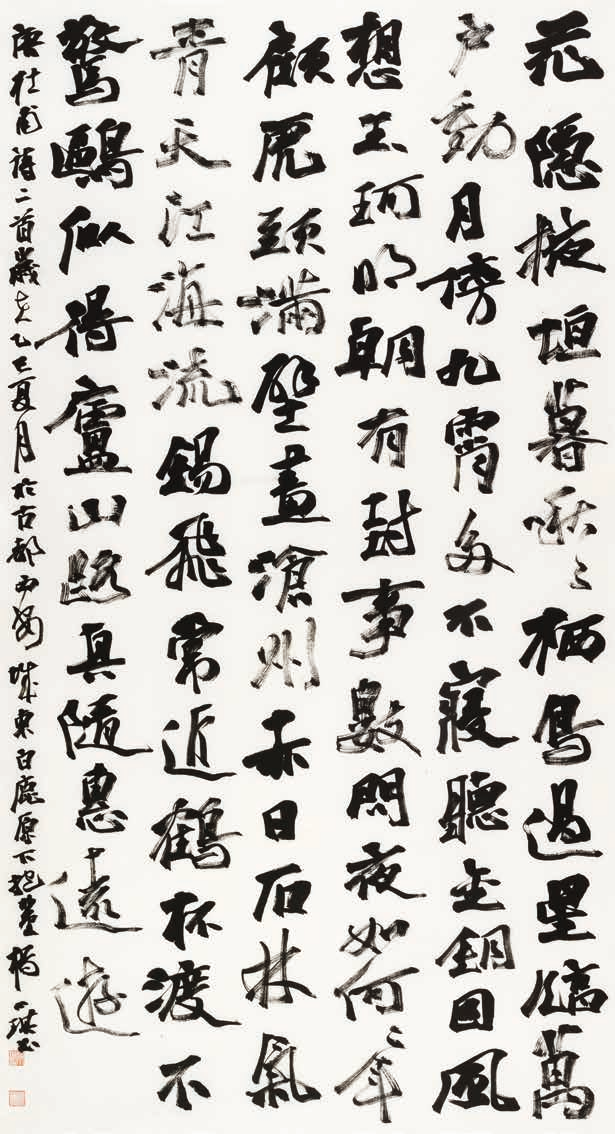 花隱掖垣暮啾〻栖鳥過星臨萬
户動月傍九霄多不寢聽金鑰因風
想玉珂明朝有封事數問夜如何〻年
顧虎頭滿壁畫滄州赤日石林氣
青天江海流錫飛常近鶴杯渡不
驚鷗似得廬山路真隨惠遠遊
唐杜甫詩二首歲在乙巳夏月於古都西安城東白鹿原下楊書